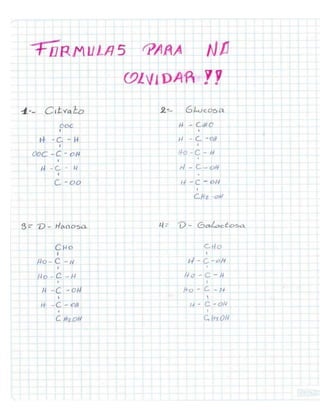 FORMULAS PARA NO
OLVIDAR !!
1.- Citrato
OOC
H - C - H
OOC - C - OH
H - C - H
C - OO
2.- Glucosa
H - C=O
H - C - OH
HO - C - H
H - C - OH
H - C - OH
CH2 - OH
3.- D - Manosa
CHO
HO - C - H
HO - C - H
H - C - OH
H - C - OH
CH2OH
4.- D - Galactosa
CHO
H - C - OH
HO - C - H
HO - C - H
H - C - OH
CH2OH